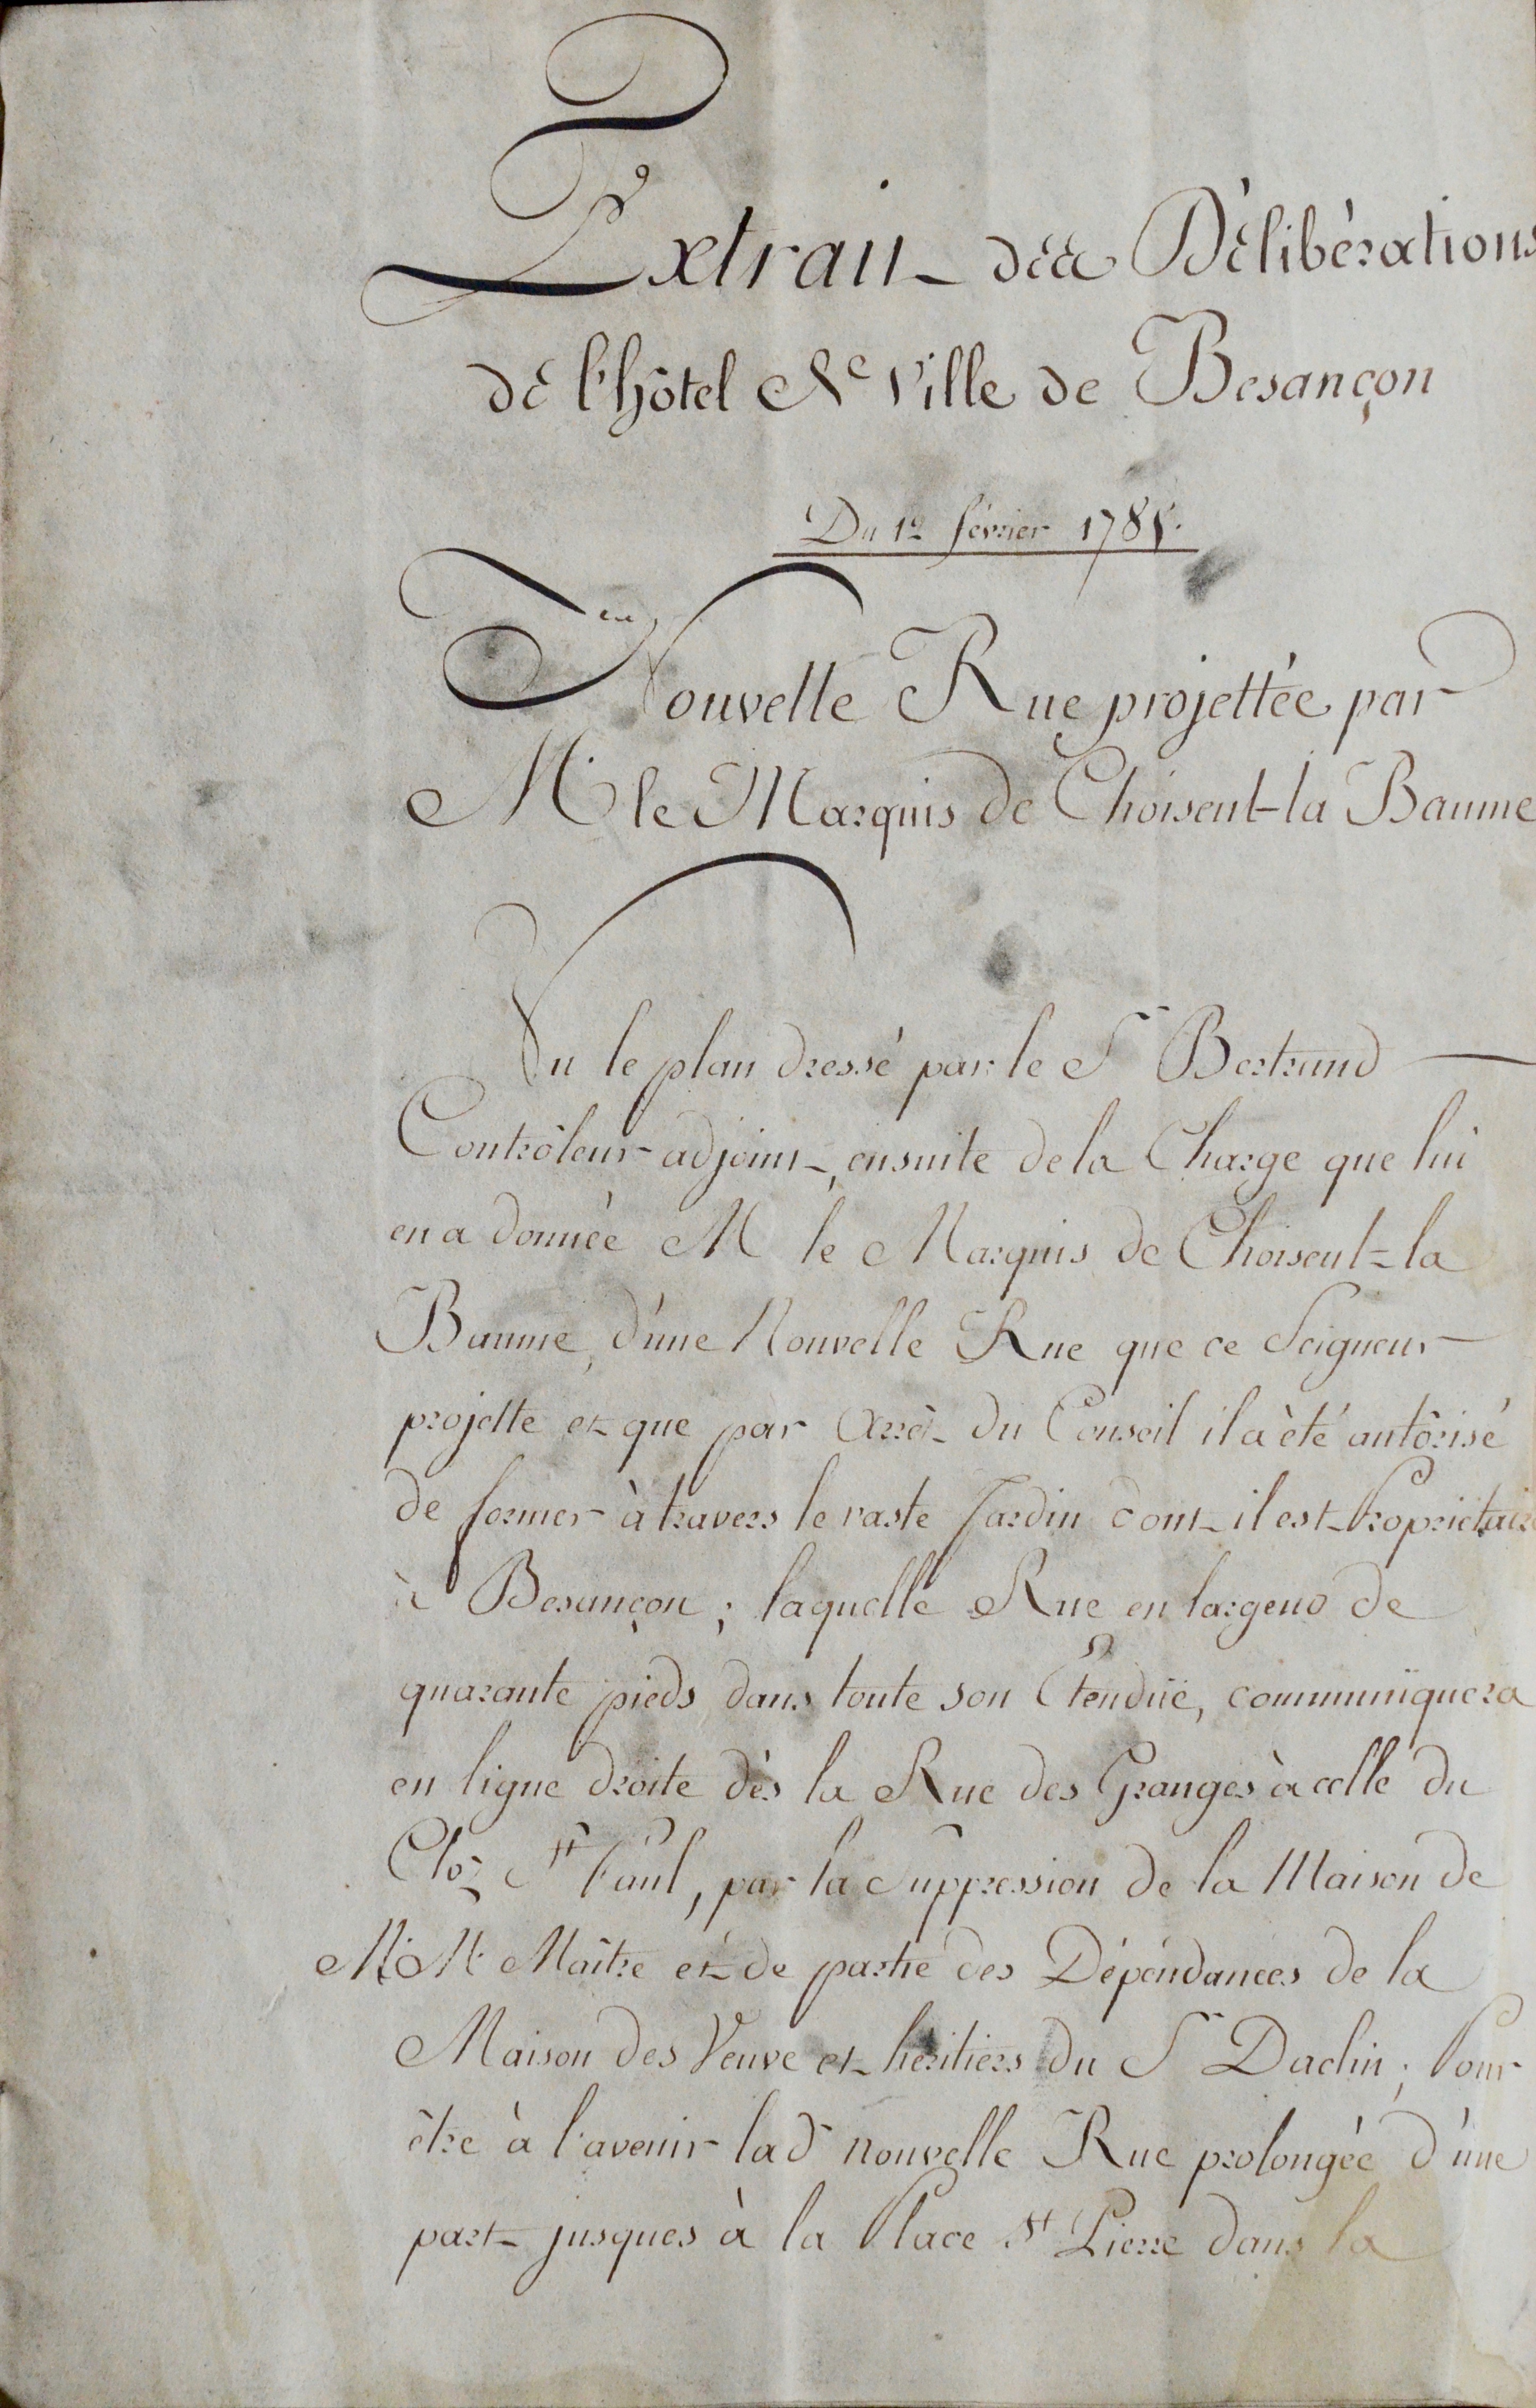 Extrait des Délibérations
de l'hôtel de Ville de Besançon
Du 12 février 1785.
Nouvelle Rue projettée par
M. le Marquis de Choiseul-la Baume
Vu le plan dressé par le Sr Bertrand
Contrôleur adjoint, ensuite de la Charge que lui
en a donnée M le Marquis de Choiseul=la
Baume, d'une Nouvelle Rue que ce Seigneur
projette et que par Arrêt du Conseil il a été autôrisé
de former à travers le vaste Jardin dont il est Propriétaire
à Besançon ; laquelle Rue en largeur de
quarante pieds dans toute son Etendüe, communiquera
en ligne droite dès la Rue des Granges à celle du
Clos St Paul, par la Suppression de la Maison de
M. M. Maître et de partie des Dépendances de la
Maison des Veuve et héritiers du Sr Daclin ; Pour
être à l'avenir lad. nouvelle Rue prolongée d'une
part jusques à la Place St Pierre dans la